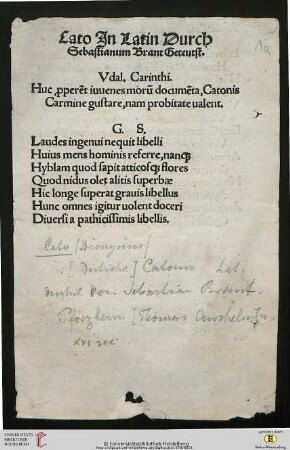 Cato Jn Latin Durch
Sebastianum Brant Geteutst.
Vdal. Carinthi.
Huc ꝓperẽt iuuenes morũ documẽta, Catonis
Carmine gustare, nam probitate ualent.
G. S.
Laudes ingenui nequit libelli
Huius mens hominis referre, nanꝗ
Hyblam quod sapit atticosꝗ flores
Quod nidus olet alitis superbæ
Hic longe superat grauis libellus
Hunc omnes igitur uolent doceri
Diuersi a pathicissimis libellis.
Cato / Dionysius /
[Disticha] Catonis Lat.
deutsch von Sebastian Brant.
Pforzheim [Thomas Anshelm]
XVI
UNIVERSITÄTS-
BIBLIOTHEK
HEIDELBERG
© Universitätsbibliothek Heidelberg
Baden-Württemberg